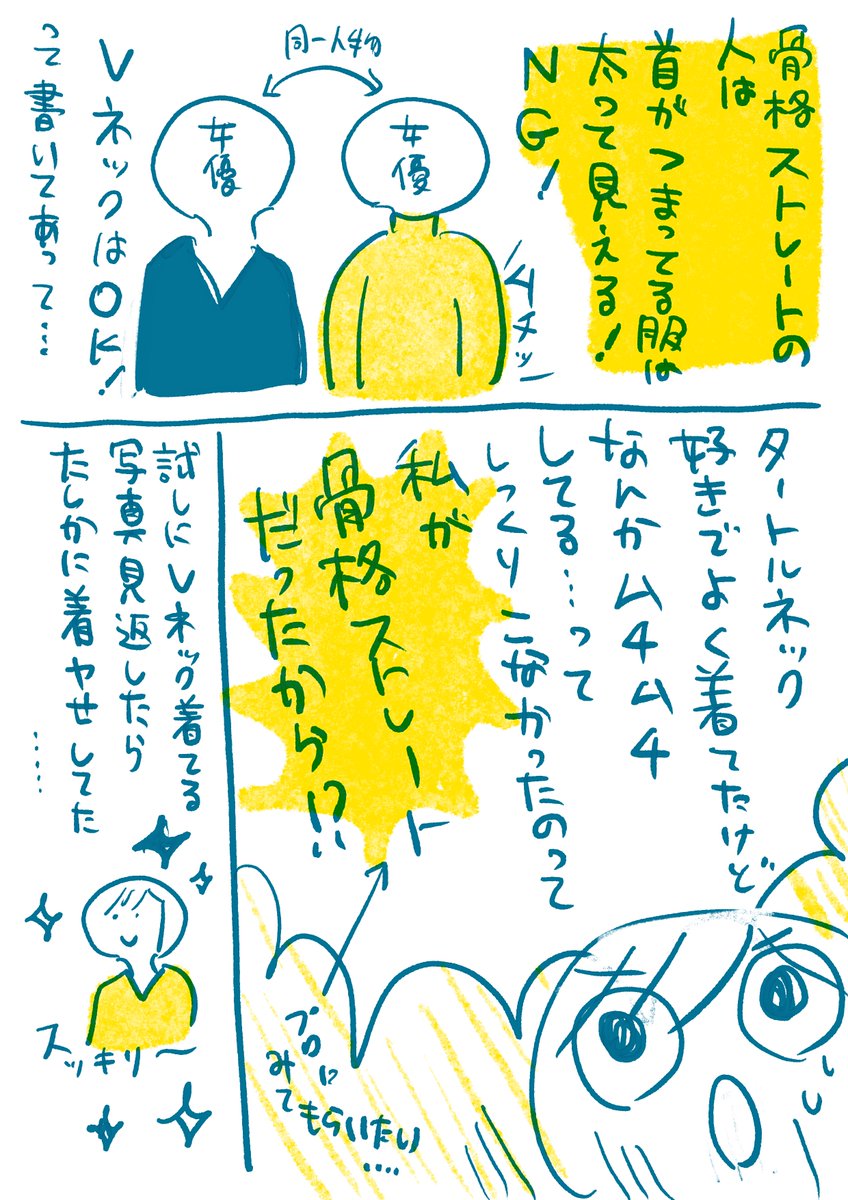 骨格ストレートの
人は
首がつまってる服は
太って見える!
NG!
同一人物
女優
女優
ムチッ
Vネックは○K!
って書いてあって…
タートルネック
好きでよく着てたけど
なんかムチムチ
してる…って
しっくりこなかったのって
私が
骨格ストレート
だったから!?
プロに
みて
もらいたい
….
試しにVネック着てる
写真見返したら
たしかに着ヤせしてた
……
スッキリ〜